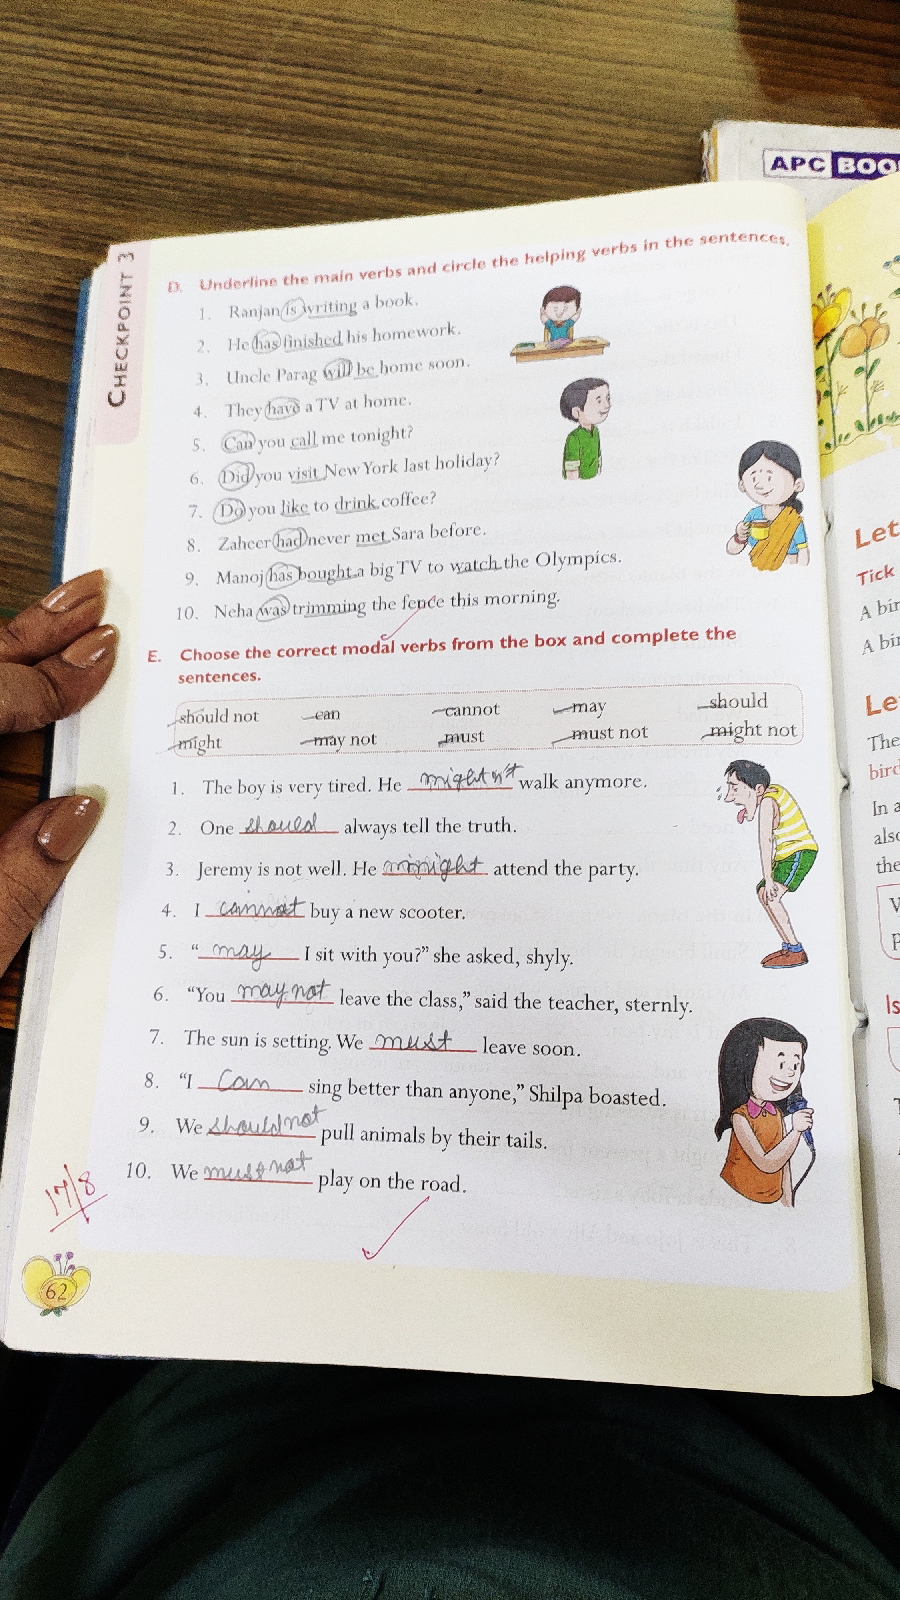 APC BOO
CHECKPOINT 3
D. Underline the main verbs and circle the helping verbs in the sentences.
1. Ranjan is writing a book.
2. He has finished his homework.
3. Uncle Parag will be home soon.
4. They have a TV at home.
5. Can you call me tonight?
6. Did you visit New York last holiday?
7. Do you like to drink coffee?
8. Zaheer had never met Sara before.
9. Manoj has bought a big TV to watch the Olympics.
10. Neha was trimming the fence this morning.
E. Choose the correct modal verbs from the box and complete the
sentences.
should not can cannot may should
might may not must must not might not
1. The boy is very tired. He might not walk anymore.
2. One should always tell the truth.
3. Jeremy is not well. He might attend the party.
4. I cannot buy a new scooter.
5. "may I sit with you?" she asked, shyly.
6. "You may not leave the class," said the teacher, sternly.
7. The sun is setting. We must leave soon.
8. "I Can sing better than anyone," Shilpa boasted.
9. We should not pull animals by their tails.
10. We must not play on the road.
17/8
62
Let
Tick
A bir
A bi
Le
The
bird
In a
also
the
Is